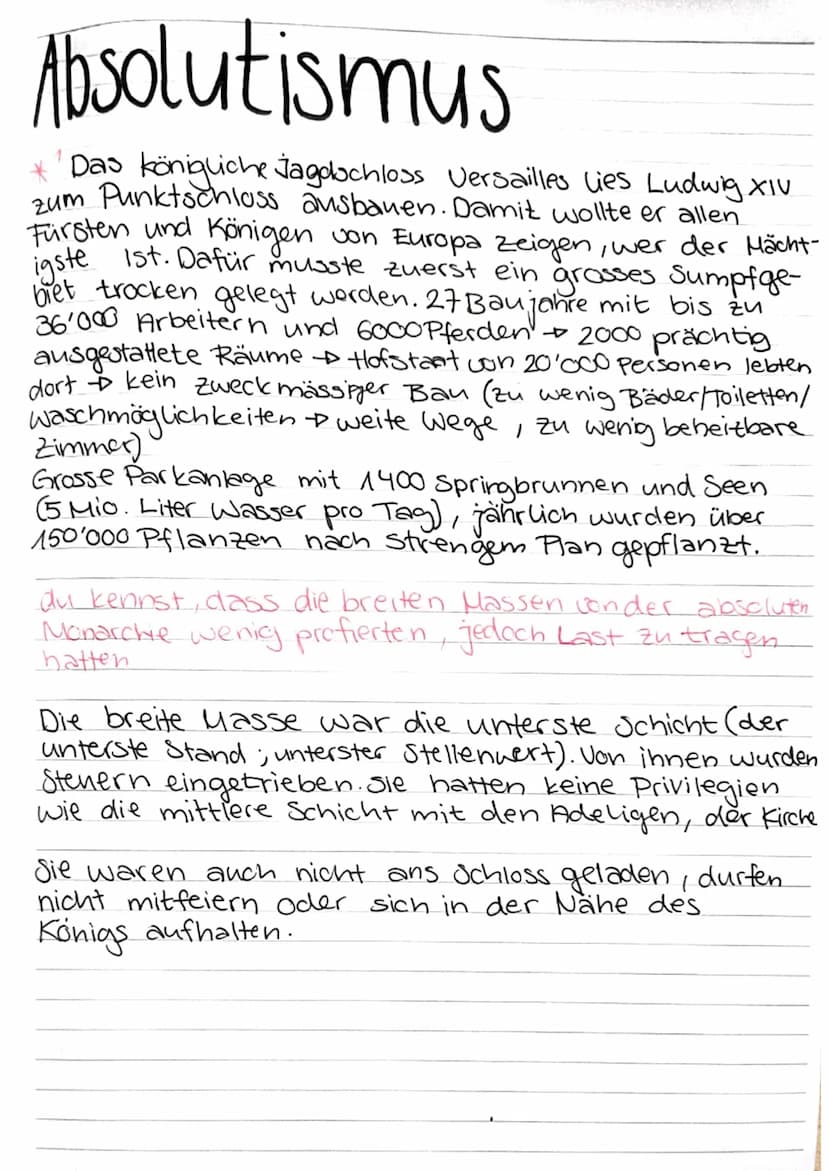 Absolutismus
*¹ Das königliche Jagdschloss Versailles lies Ludwig XIV
zum Punktschloss ausbauen. Damit wollte er allen
Fürsten und Königen von Europa zeigen, wer der Mächt-
igste Ist. Dafür musste zuerst ein grosses Sumpfge-
biet trocken gelegt werden. 27 Baujahre mit bis zu
36'000 Arbeitern und 6000 Pferden → 2000 prächtig
ausgestattete Räume → Hofstaat von 20'000 Personen lebten
dort → kein zweckmässiger Bau (zu wenig Bäder/Toiletten/
Waschmöglichkeiten → weite Wege, zu wenig beheitbare
Zimmer)
Grosse Parkanlage mit 1400 Springbrunnen und Seen
(5 Mio. Liter Wasser pro Tag), jährlich wurden über
150'000 Pflanzen nach strengem Plan gepflanzt.
du kennst, dass die breiten Massen von der absoluten
Monarchie wenig profierten, jedoch Last zu tragen
hatten
Die breite Masse war die unterste Schicht (der
unterste Stand; unterster Stellenwert). Von ihnen wurden
Steuern eingetrieben. Sie hatten keine Privilegien
wie die mittlere Schicht mit den Adeligen, der Kirche
Sie waren auch nicht ans Schloss geladen, durften
nicht mitfeiern oder sich in der Nähe des
Königs aufhalten.